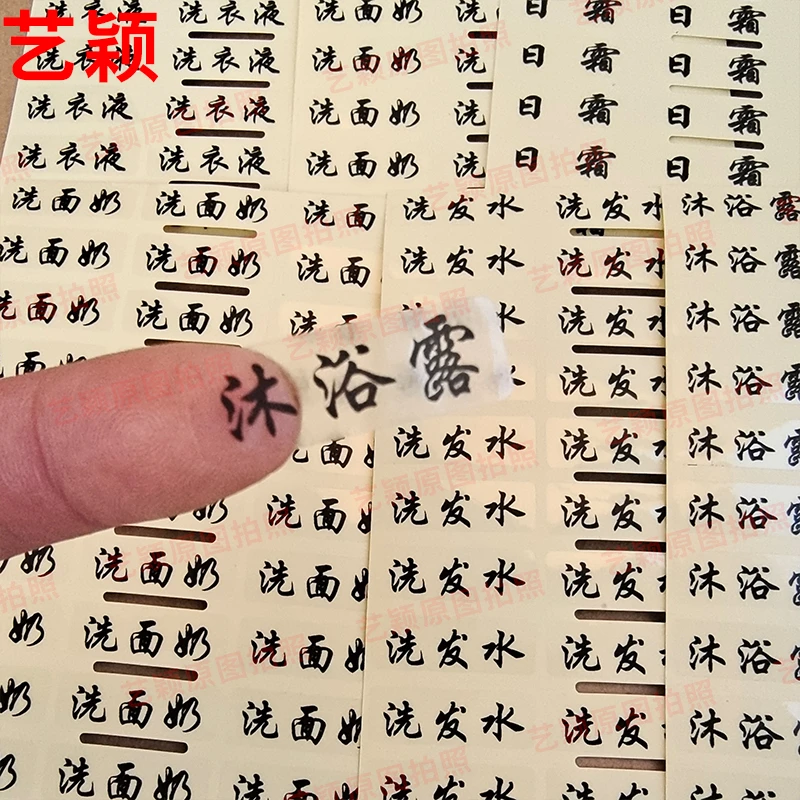 艺颖
洗衣液 洗衣液 洗面奶 洗 日 霜 日 霜
洗衣液 洗衣液 洗面奶 洗 日 霜 日 霜
洗衣液 洗衣液 洗面奶 洗 日 霜 日 霜
洗衣液 洗衣液 洗面奶 洗 日 霜 日 霜
洗面奶 洗面奶 洗面 洗发水 洗发水 沐浴露
洗面奶 洗面奶 洗面 洗发水 洗发水 沐浴露
洗面奶 洗面奶 洗 水 洗发水 沐浴露
沐浴露
洗发水 沐浴露
面奶 洗发水 洗发水 沐浴露
洗面奶 洗发水 洗发水 沐浴露
洗面奶 洗面奶 洗发水 洗发水 沐浴露
奶 洗面奶 洗面奶 洗发水 洗发水 沐浴露
奶 洗面奶 洗面奶 洗发水 洗发水 沐浴露
洗面奶 洗面奶
艺颖原图拍照